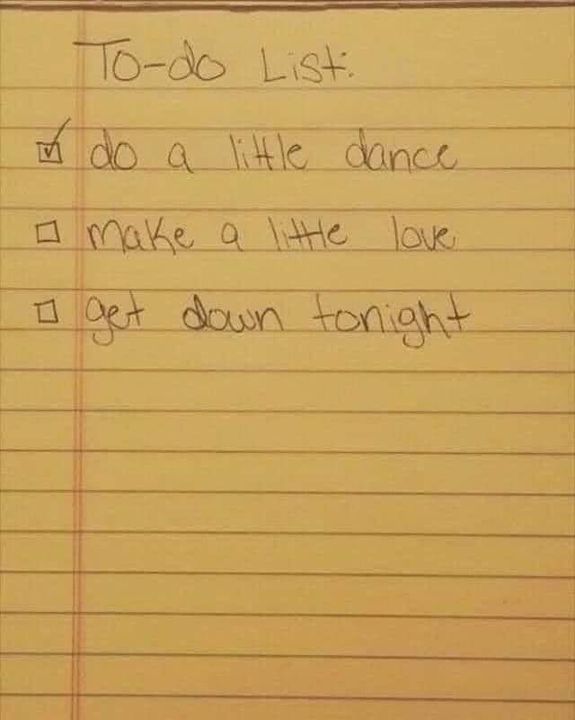 To-do List:
do a little dance
make a little love
get down tonight